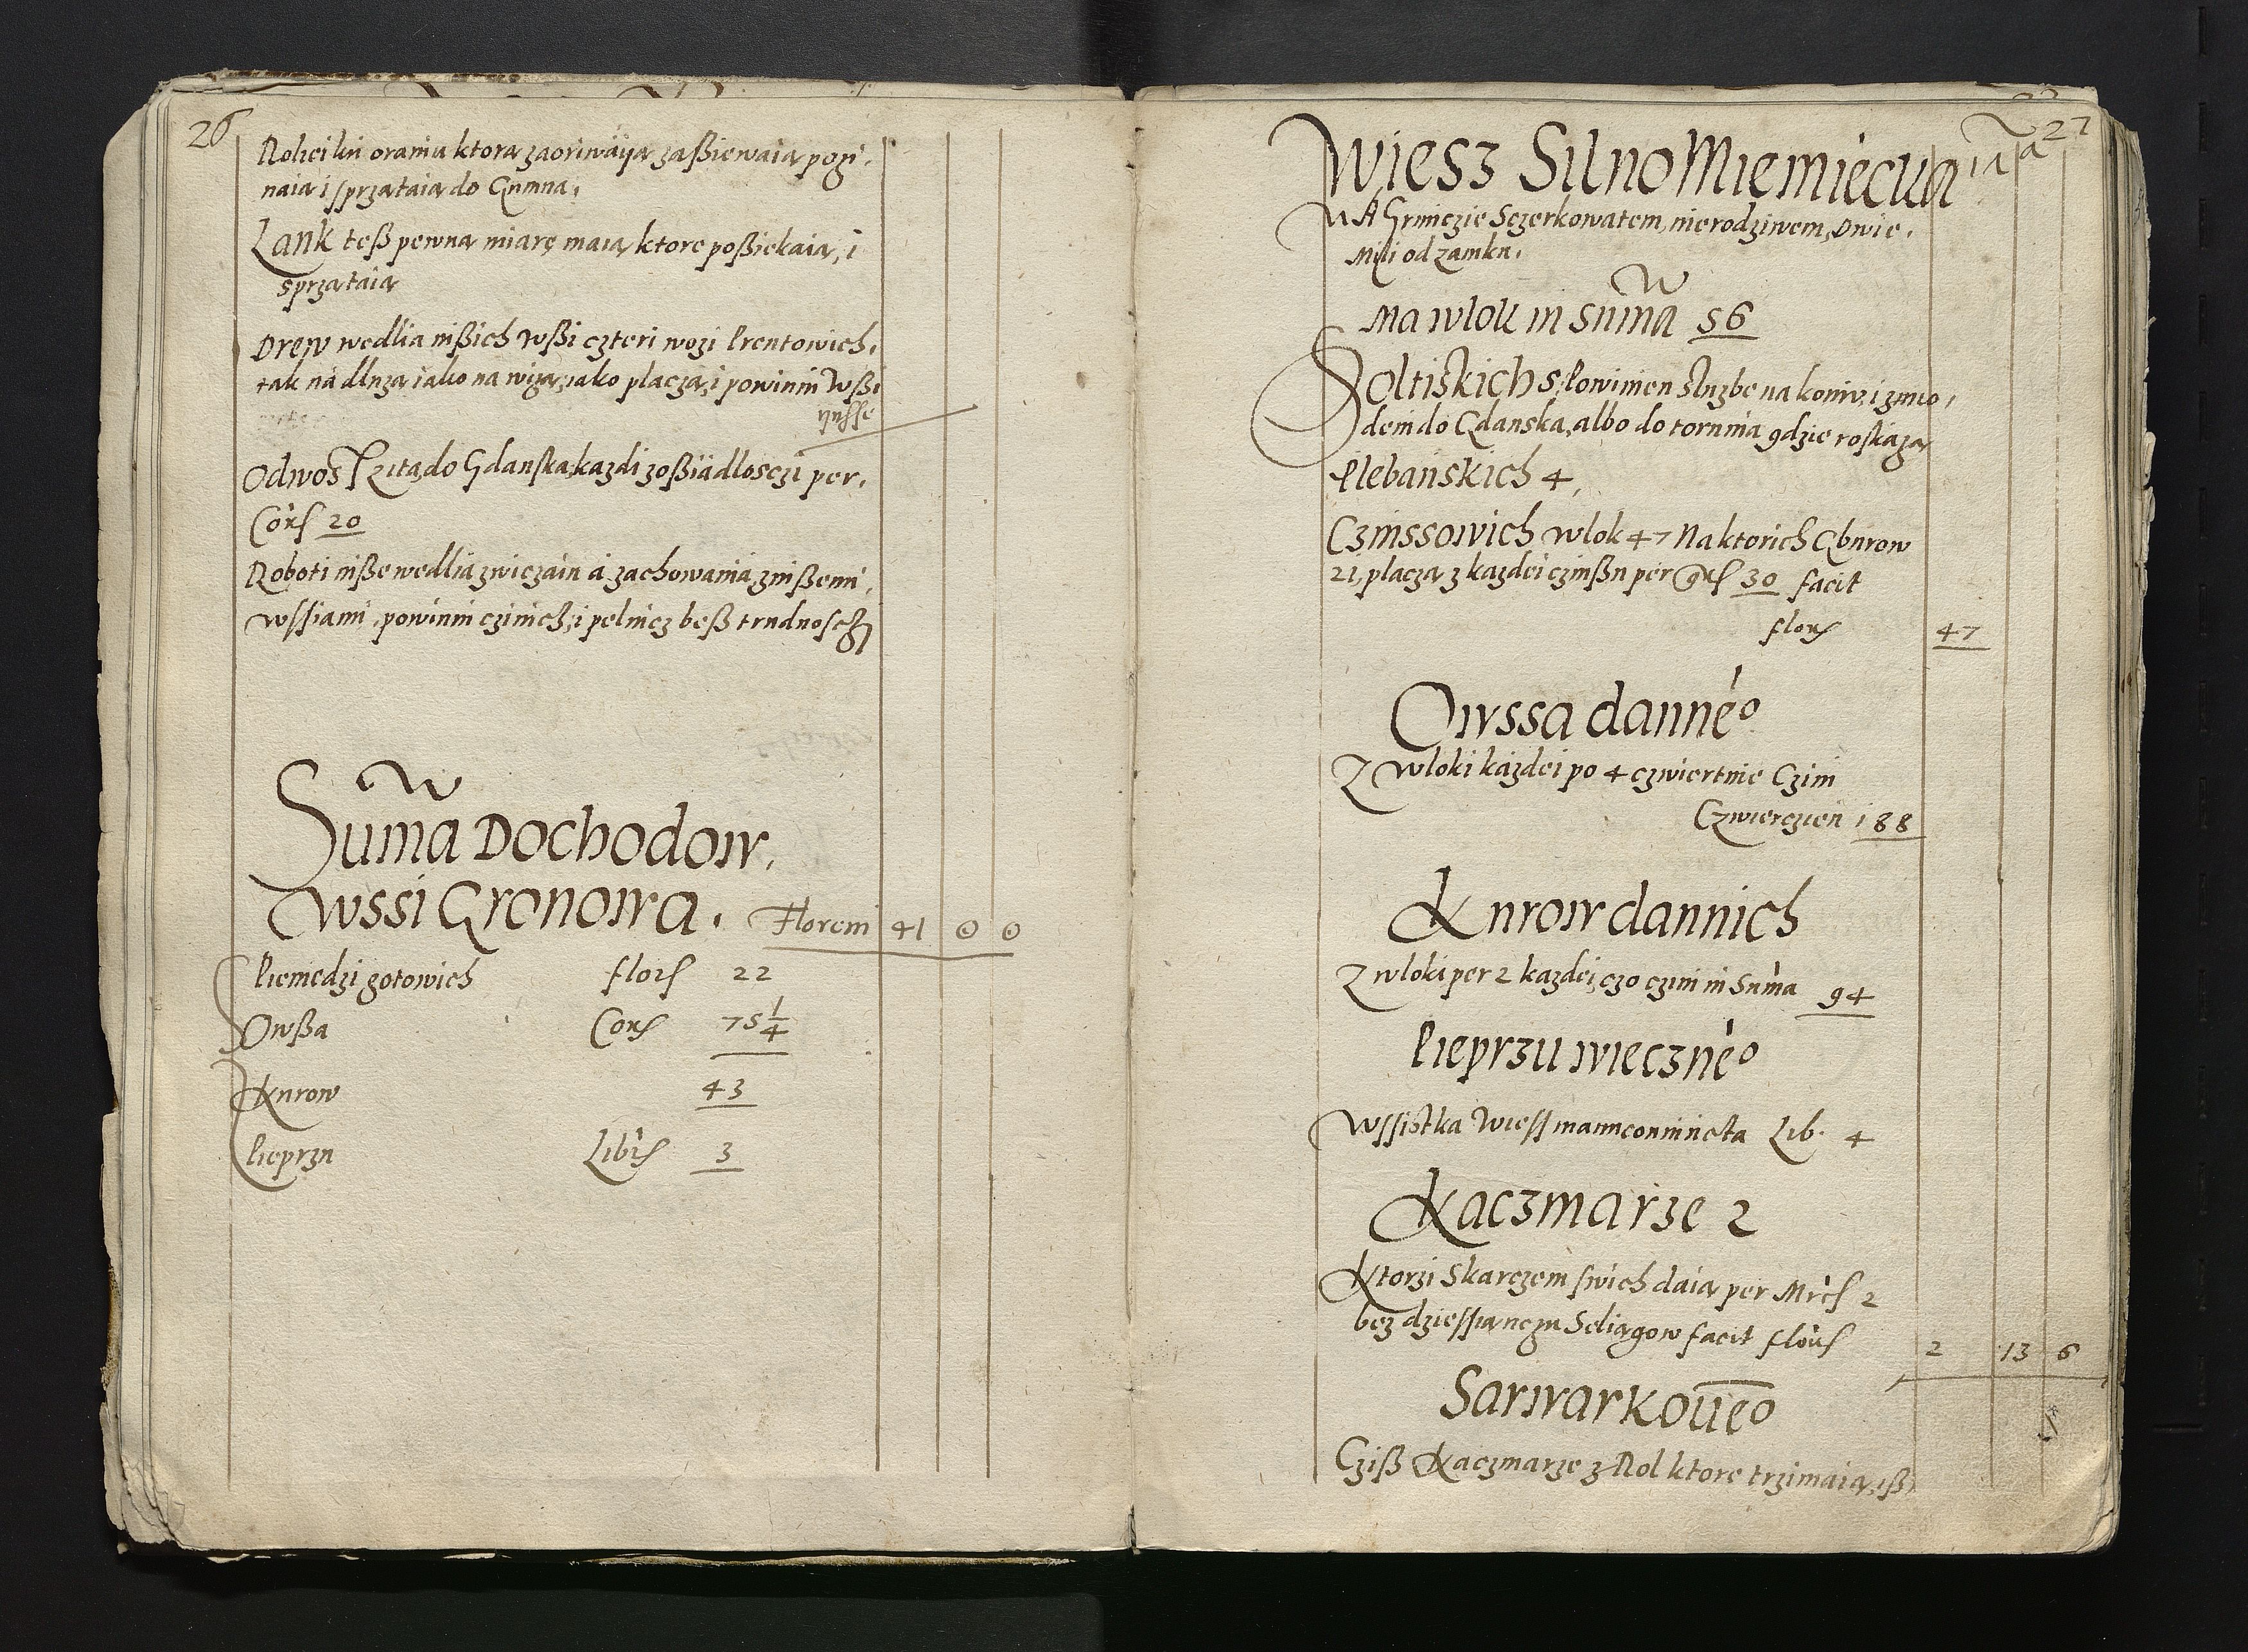 26
Rolei ku oraniu ktorą zaoriwäyą zaßiewaią pozÿ,
naią i sprzątaią do Gumna,
Lank teß pewną miarę maią ktore poßiekaią, i
sprzątaią
Drew wedlia inßich wßi czteri wozi Prentowich,
tak nà dluzą iako na wizą, iako placzą, i powinni Wßi
ynsße
Odwos Rzita do Gdanska kazdi zoßiädlosczi per,
Corſ 20
Roboti inße wedlia zwiczain á zachowania z inßemi,
wſſiami, powinni czinicz, i pelnicz beß trudnoscz
Sum̃a Dochodow,
wssi Gronowa. Floreni 41 0 0
Pieniedzi gotowich florſ 22
Owßa Corſ 75 1/4
Kurow 43
Pieprzu Librſ 3
27
Wiesz Silno Miemiecka
NA Grniczie Sczerkowatem, nierodziwem, Dwie,
Mili od Zamku,
Ma wlok in sum̃a 56
Soltiskich 5, Powinien Sluzbe na koniu, i zmio,
dem do Gdanska, albo do tornnia gdzie roskazą
Plebanskich 4,
Czinssowich wlok 47 Na ktorich Gburow
21, placzą z kazdei czinßu per grſ 30 facit
florſ 47
Owssa danneo
Z wloki kazdei po 4 czwiertnie Czini
Czwierczien 188
Kurow dannich
Z wloki per 2 kazdei, czo czini in Suma 94
Pieprzu wieczneo
Wſſistka Wieſſ manu coniuncta Lib. 4
Kaczmarze 2
Ktorzi Skarczem ſwich daią per Mrcſ 2
bez dzieſſiąnczu Seliągow facit florſ 2 13 6
Sarwarkoueo
Cziß Kaczmarze z Rol ktore trzimaią, iß